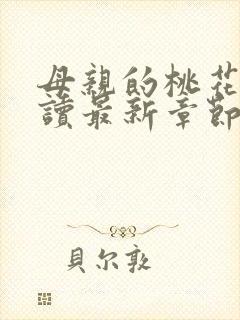 母親的桃花
讀最新章節
貝尔敦